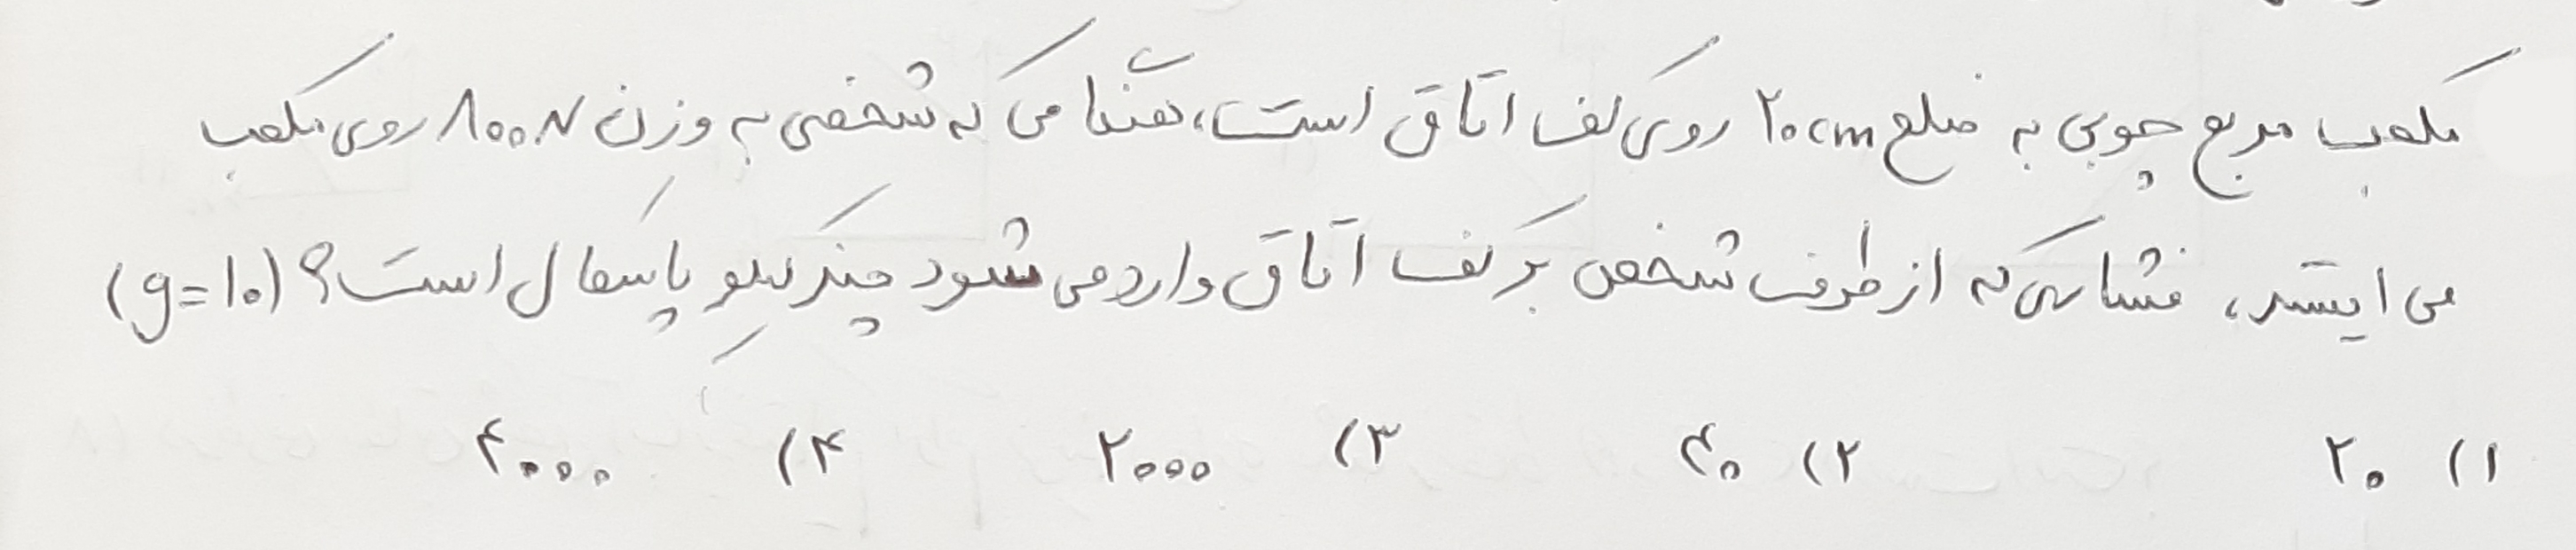 مکعب مربع چوبی به ضلع ۲۰cm روی کف اتاق است، هنگامی که شخصی به وزن ۸۰۰N روی مکعب
می ایستد، فشاری که از طرف شخص بر کف اتاق وارد می شود چند کیلو پاسکال است؟ (g=۱۰)
۱) ۲۰ ۲) ۴۰ ۳) ۲۰۰۰ ۴) ۴۰۰۰